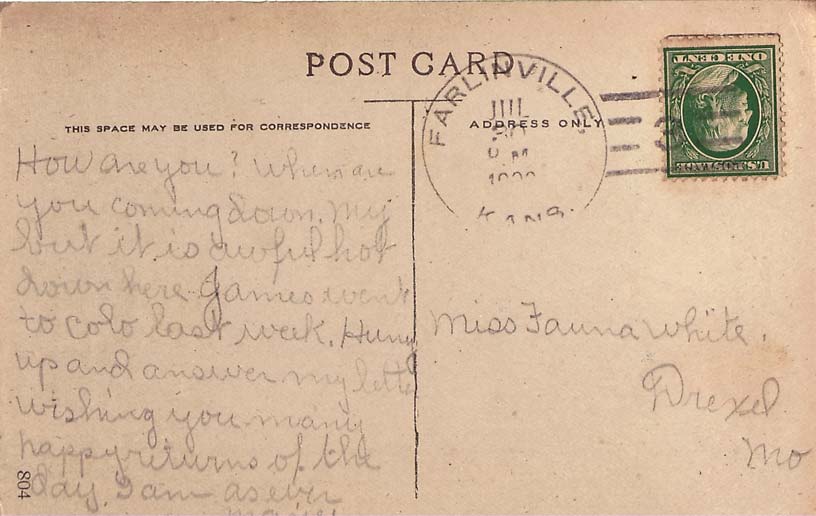 POST CARD
THIS SPACE MAY BE USED FOR CORRESPONDENCE
ADDRESS ONLY
FARLINVILLE,
JUL
KANS.
U.S. POSTAGE
ONE CENT
How are you? When are
you coming down. My
but it is awful hot
down here James went
to Colo last week. Hurry
up and answer my letter
wishing you many
happy returns of the
day, I am as ever
Miss Fauna White.
Drexel
Mo
804